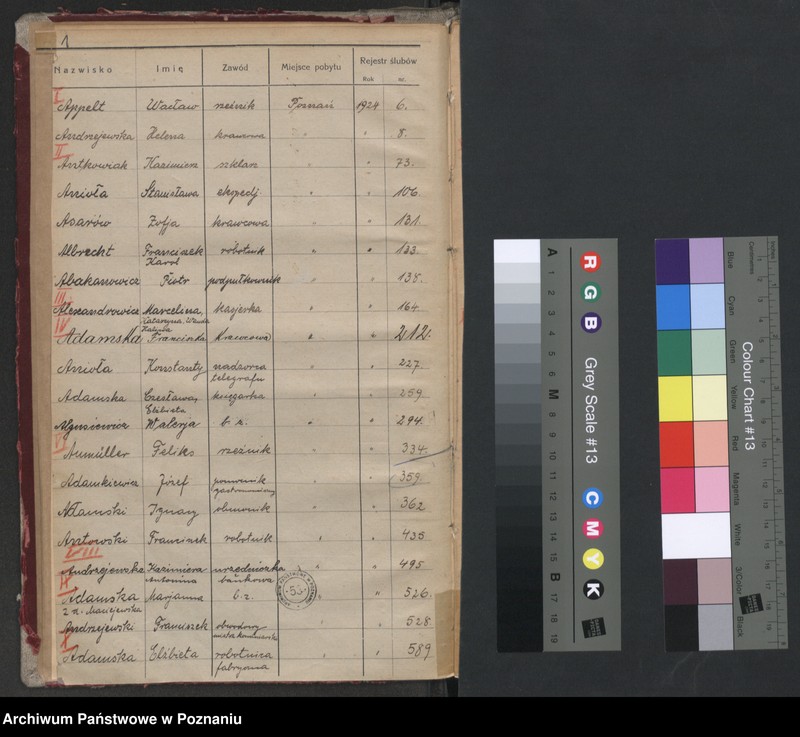 1
Nazwisko Imię Zawód Miejsce pobytu Rejestr ślubów
Rok nr.
I
Appelt Wacław rzeźnik Poznań 1924 6.
Andrzejewska Helena krawcowa " " 8.
II
Antkowiak Kazimierz szklarz " 73.
Anioła Stanisława ekspedj. " " 106
Zofja krawcowa " " 131.
Albrecht Franciszek robotnik " " 133
Karol
Abakanowicz Piotr podpułkownik " 138.
III
Alexandrowicz Marcelina, kasjerka " " 164
Katarzyna, Wanda
IV
Adamska Franciszka krawcowa " " 212.
Anioła Konstanty nadzorca " " 227.
telegrafu
Adamska Czesława, księgarka " " 259.
Elżbieta
Walerja b. z. " " 294.
Aumüller Feliks rzeźnik " " 334.
Adamkiewicz Józef pomocnik " " 359.
gastronomiczny
Adamski Ignacy " " 362
Antowski Franciszek robotnik " " 435
VIII
Andrzejewska Kazimiera urzędniczka " " 495
Antonina bankowa
IX
Adamska Marjanna b. z. " 526.
z d. Maciejewska
Andrzejewski Franciszek " " 528
X
Adamska Elżbieta robotnica " " 589
fabryczna
53
A 1 2 3 4 5 6 M 8 9 10 11 12 13 14 15 B 17 18 19
R G B Grey Scale #13 C M Y K
Blue Cyan Green Yellow Red Magenta White 3/Color Black
Colour Chart #13
Centimetres Inches
Archiwum Państwowe w Poznaniu